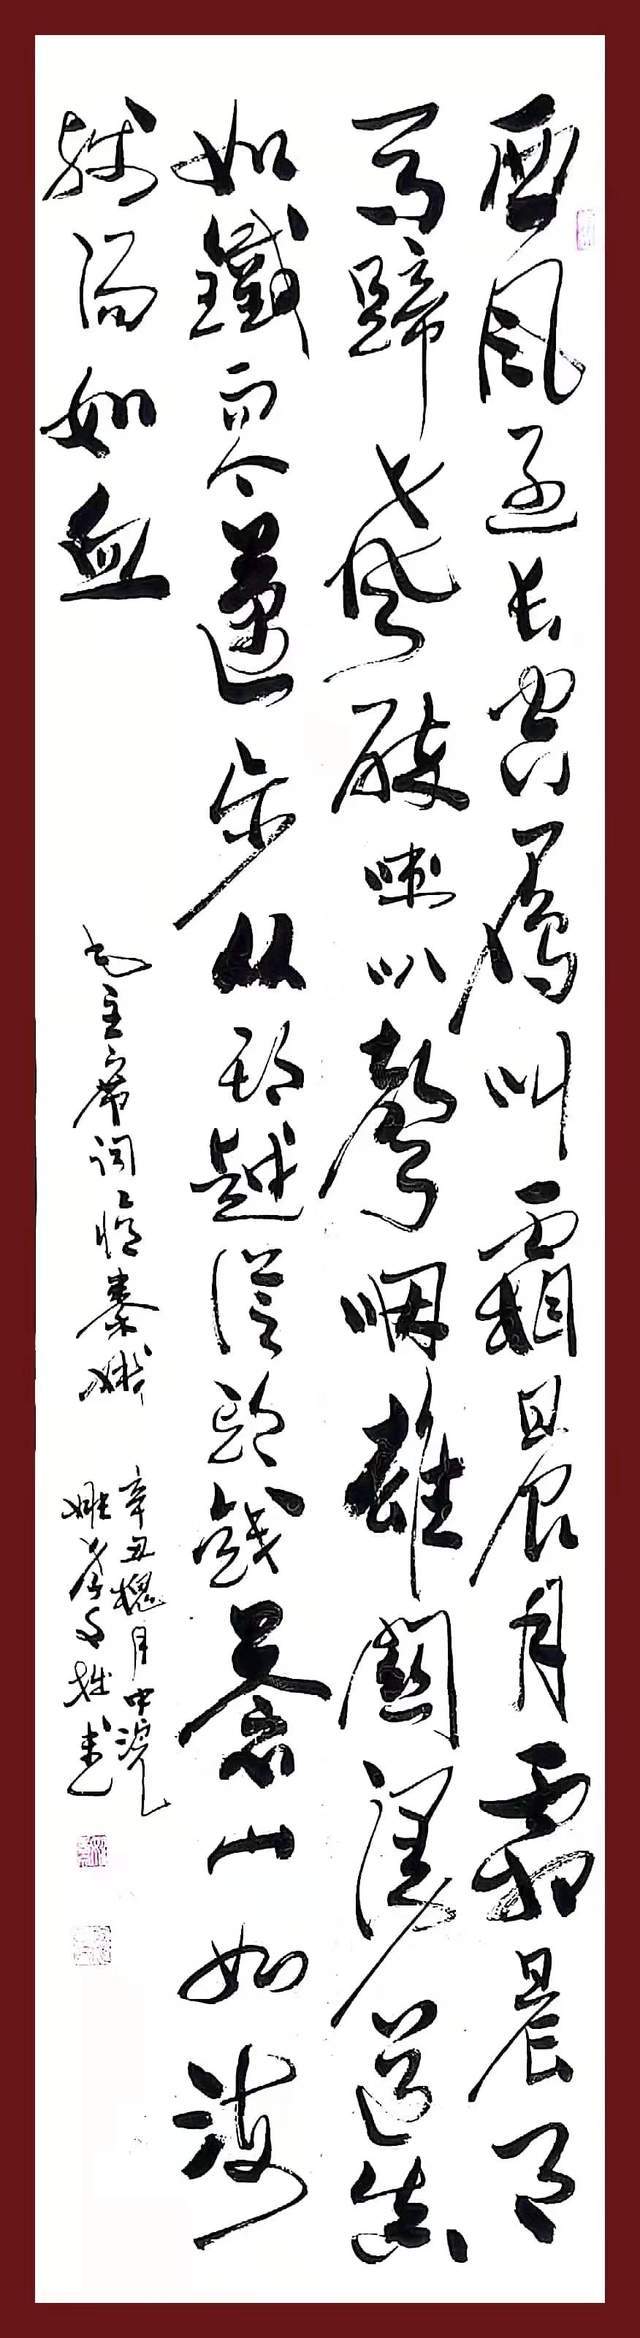 西風烈长空雁叫霜晨月霜晨月
馬蹄聲碎喇叭聲咽雄關漫道真
如鐵而今邁步从頭越從頭越蒼山如海
殘陽如血
毛主席词憶秦娥
辛丑槐月中浣
姚書